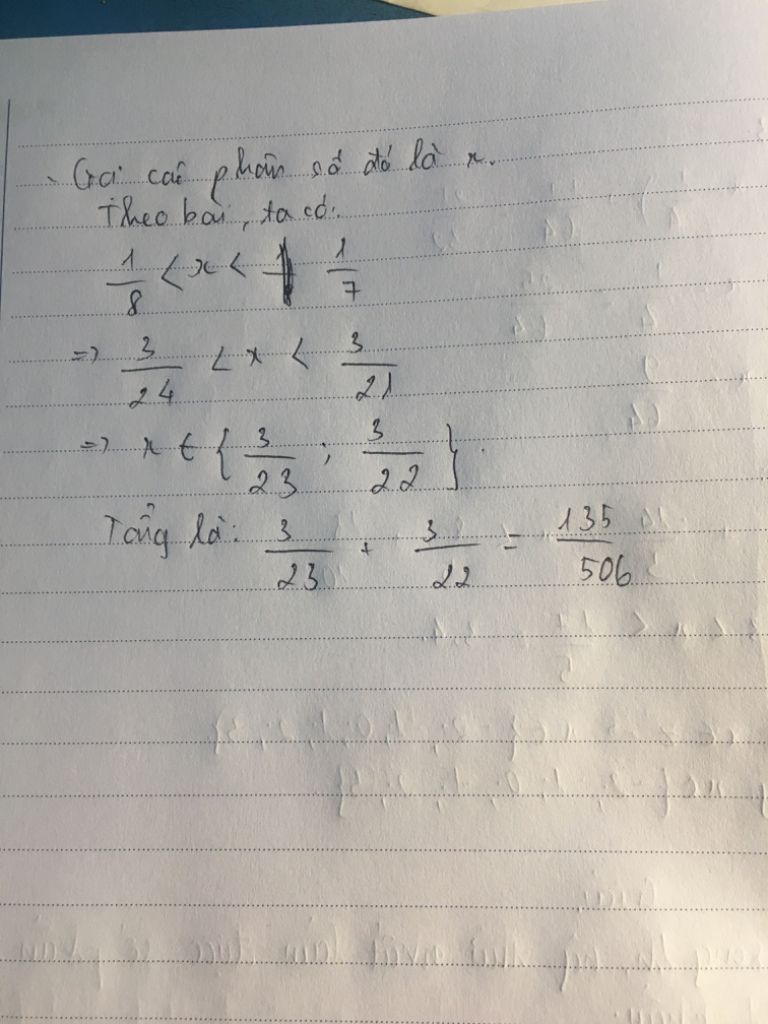 - Gọi các phân số đó là x.
Theo bài, ta có:
1/8 < x < 1/7
=> 3/24 < x < 3/21
=> x ∈ { 3/23 ; 3/22 }.
Tổng là: 3/23 + 3/22 = 135/506